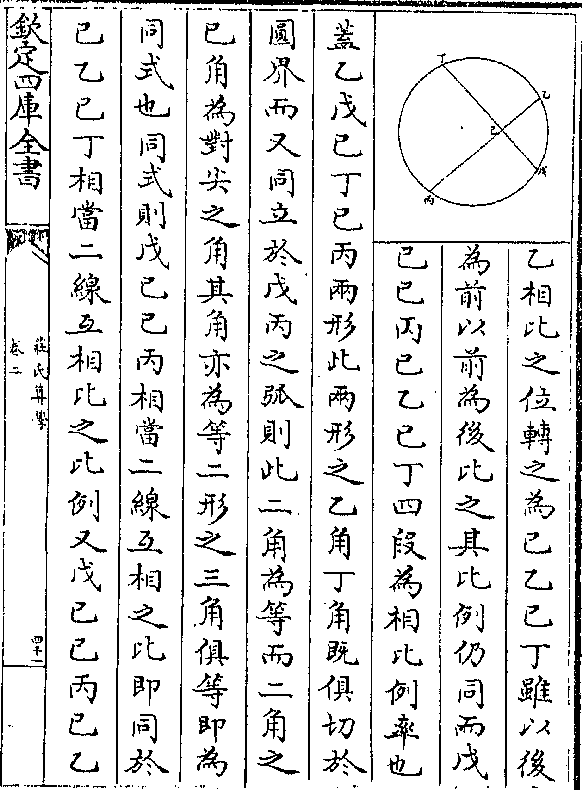 乙相比之位轉之為己乙己丁雖以後
為前以前為後比之其比例仍同而戊
己己丙己乙己丁四段為相比例率也
蓋乙戊己丁己丙兩形此兩形之乙角丁角既俱切於
圓界而又同立於戊丙之弧則此二角為等而二角之
己角為對尖之角其角亦為等二形之三角俱等即為
同式也同式則戊己己丙相當二線互相之比即同於
己乙己丁相當二線互相比之比例又戊己己丙己乙
丁
乙
己
戊
丙
欽定四庫全書
莊氏算學
卷二
四十一